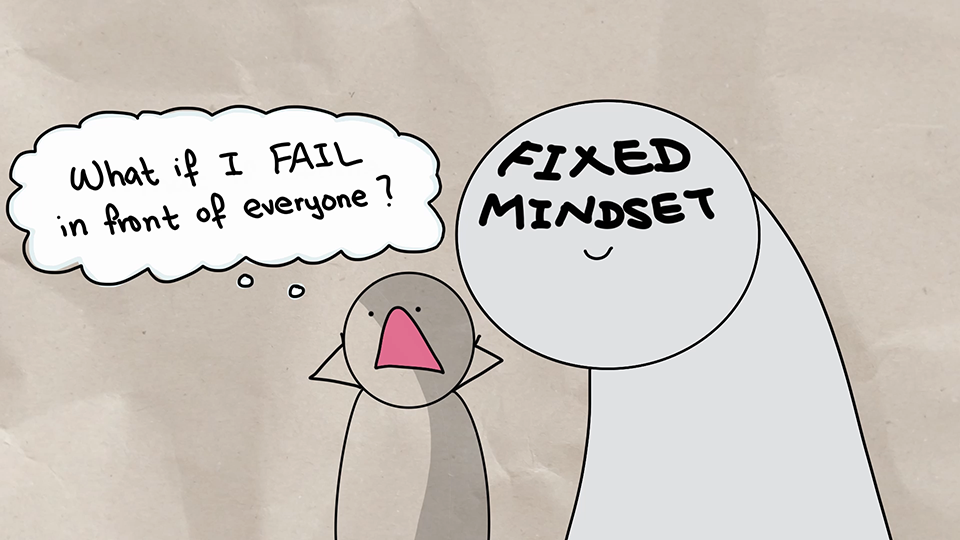 What if I FAIL
in front of everyone?
FIXED
MINDSET